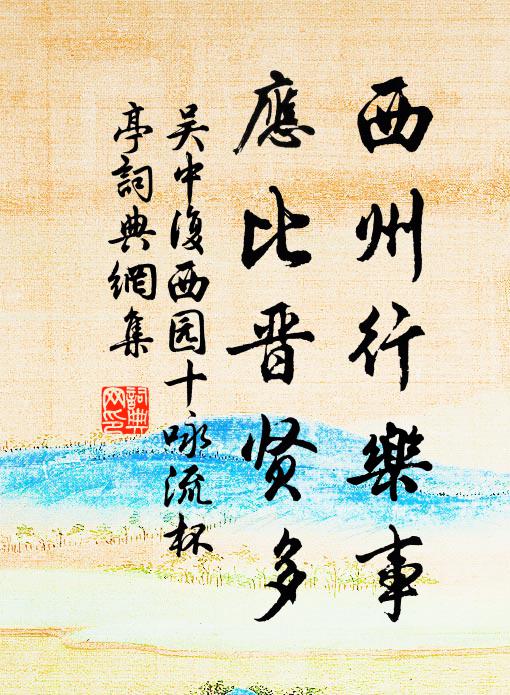 西州行樂事
應比晋贤多
吴中復西园十咏流杯
亭詞典網集
詞典網印